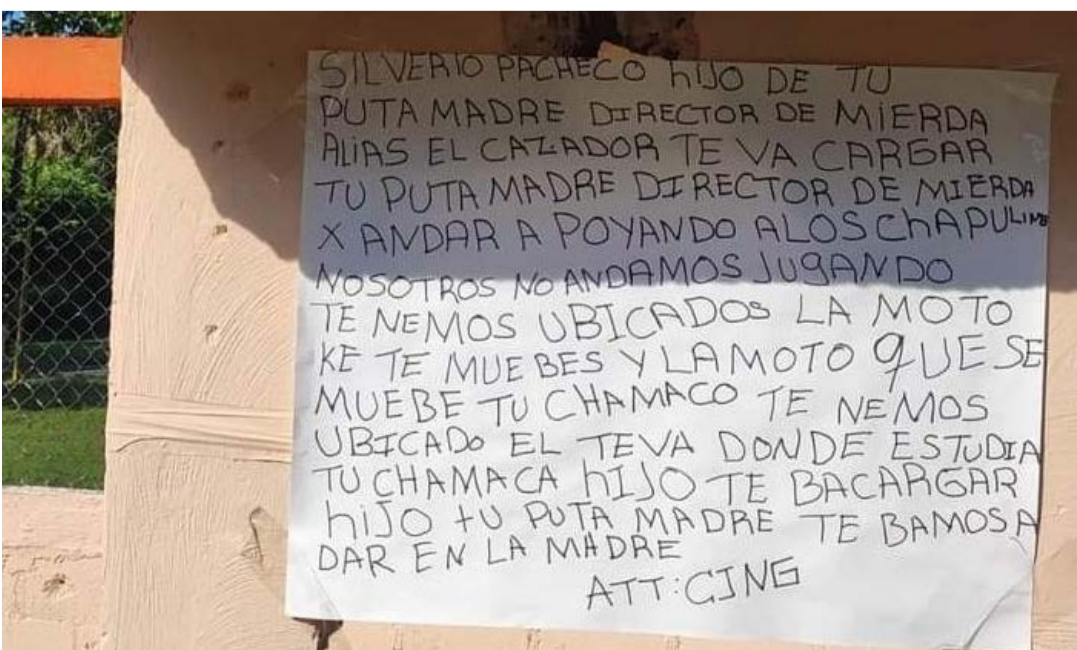 SILVERIO PACHECO hIJO DE TU
PUTA MADRE DIRECTOR DE MiERDA
ALiAS EL CAZADOR TE VA CARGAR
TU PUTA MADRE DIRECTOR DE MIERDA
X ANDAR A POYANDO ALOS ChAPULINES
NOSOTROS NO ANDAMOS JUgANDO
TE NEMOS UBICADOS LA MOTO
KE TE MUEBES Y LA MOTO qUE SE
MUEBE TU CHAMACO TE NEMOS
UBICADO EL TEVA DONDE ESTUDIA
TU CHAMACA hIJO TE BACARGAR
hiJO tU PUTA MADRE TE BAMOS A
DAR EN LA MADRE
ATT: CJNG